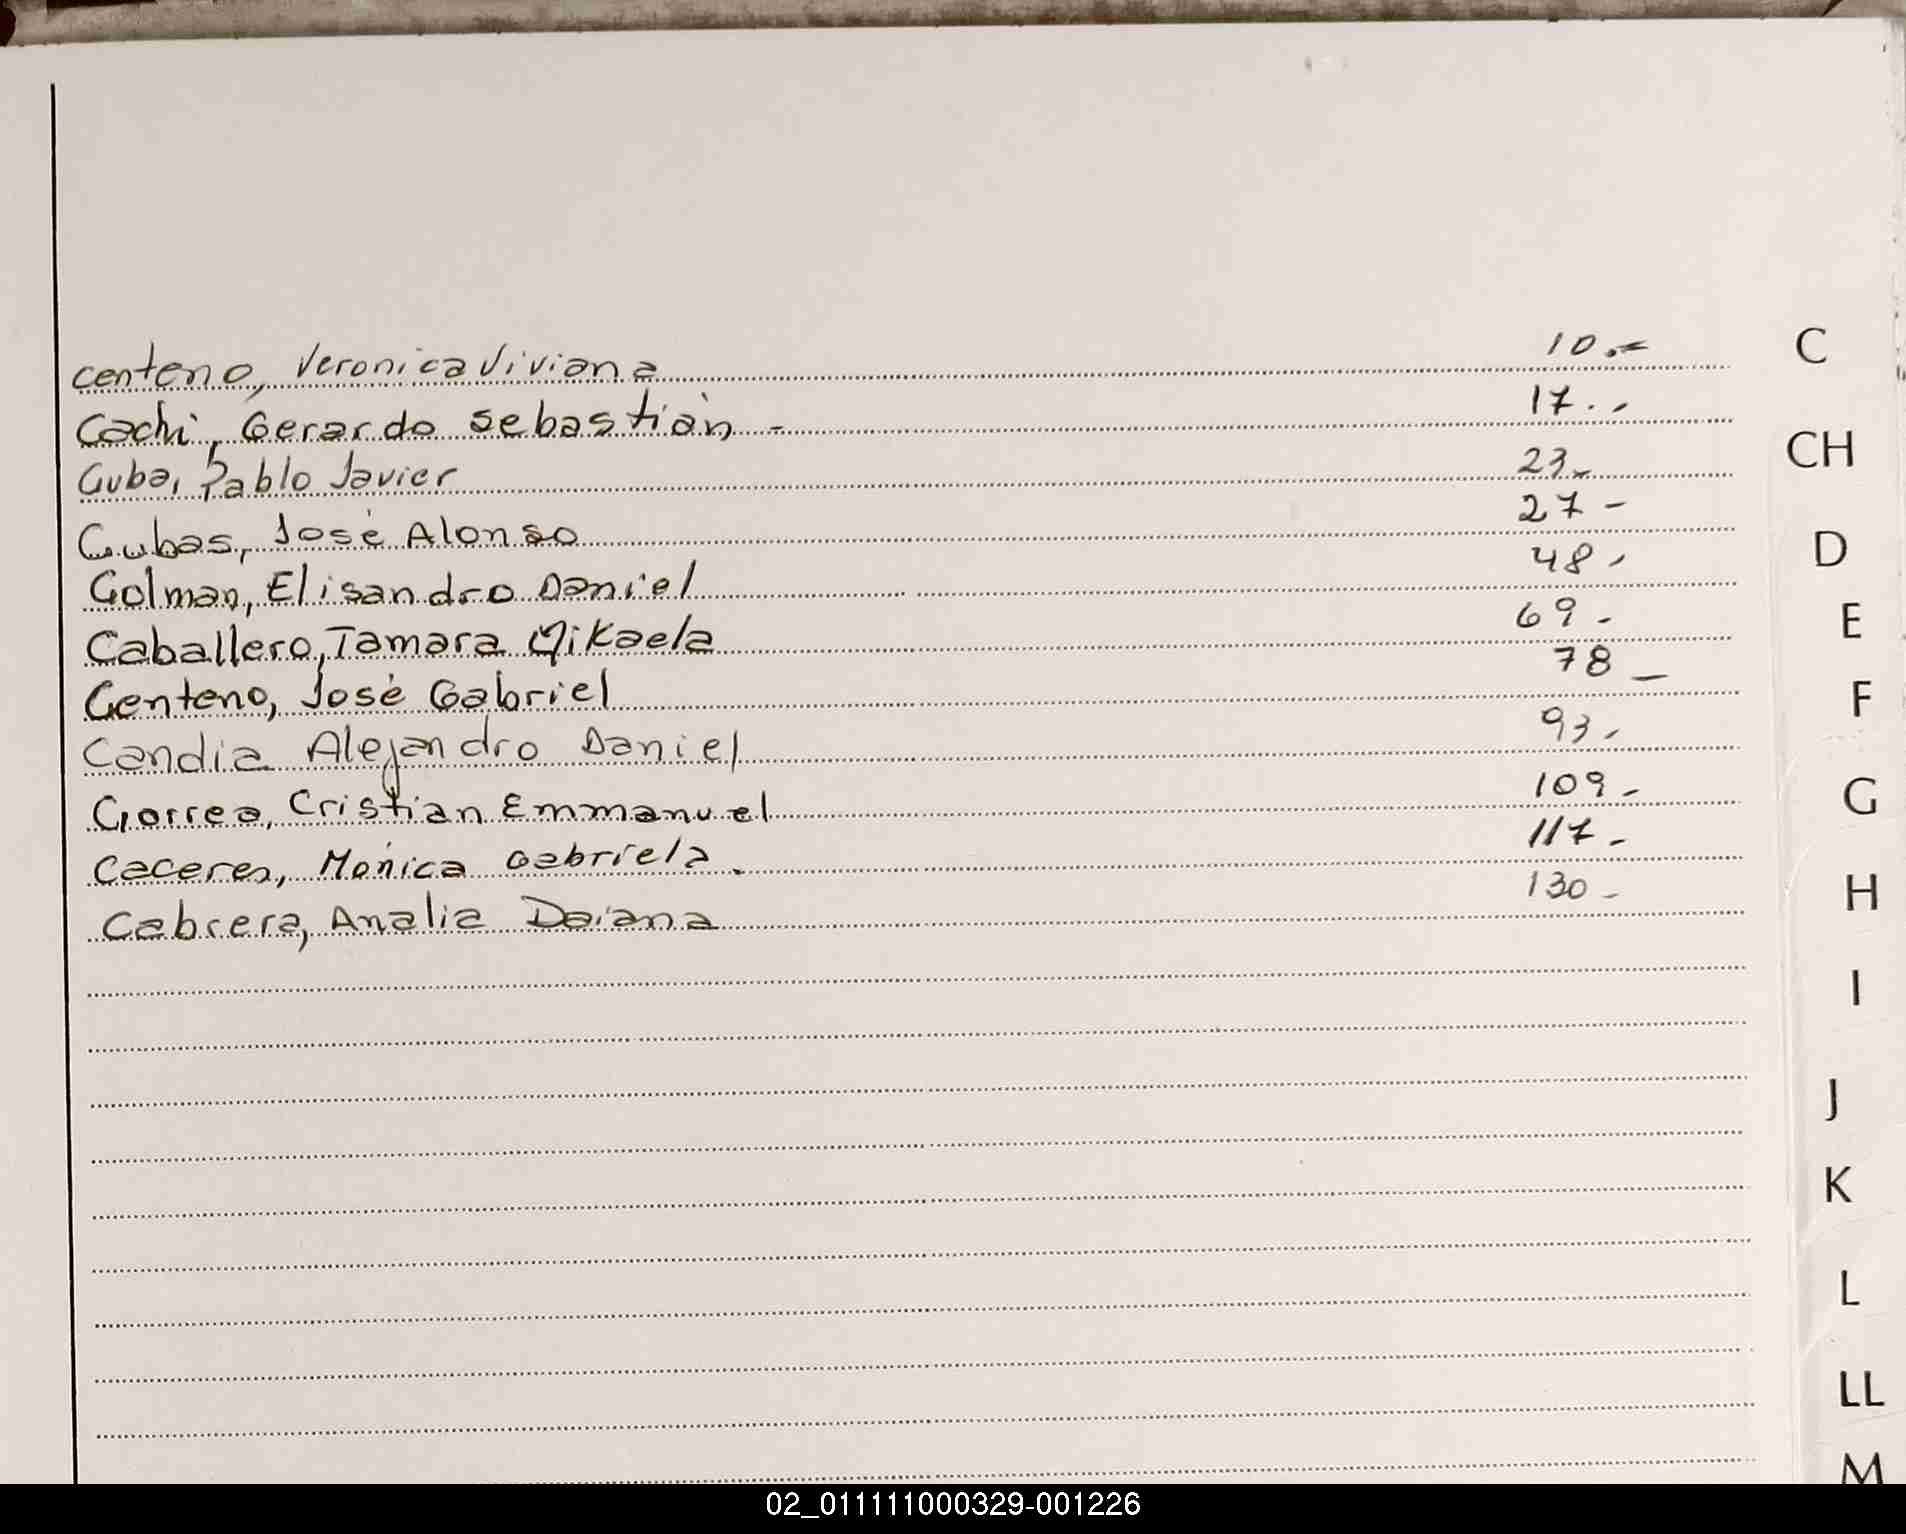 Centeno, Veronica Viviana 10.-
Cachi, Gerardo Sebastián - 17.-
Cuba, Pablo Javier 23.-
Cubas, José Alonso 27 -
Colman, Elisandro Daniel 48 -
Caballero, Tamara Mikaela 69 -
Centeno, José Gabriel 78 -
Candia Alejandro Daniel 93 -
Correa, Cristian Emmanuel 109 -
Caceres, Mónica Gabriela. 117 -
Cabrera, Analia Daiana 130 -
C
CH
D
E
F
G
H
I
J
K
L
LL
M
02_011111000329-001226